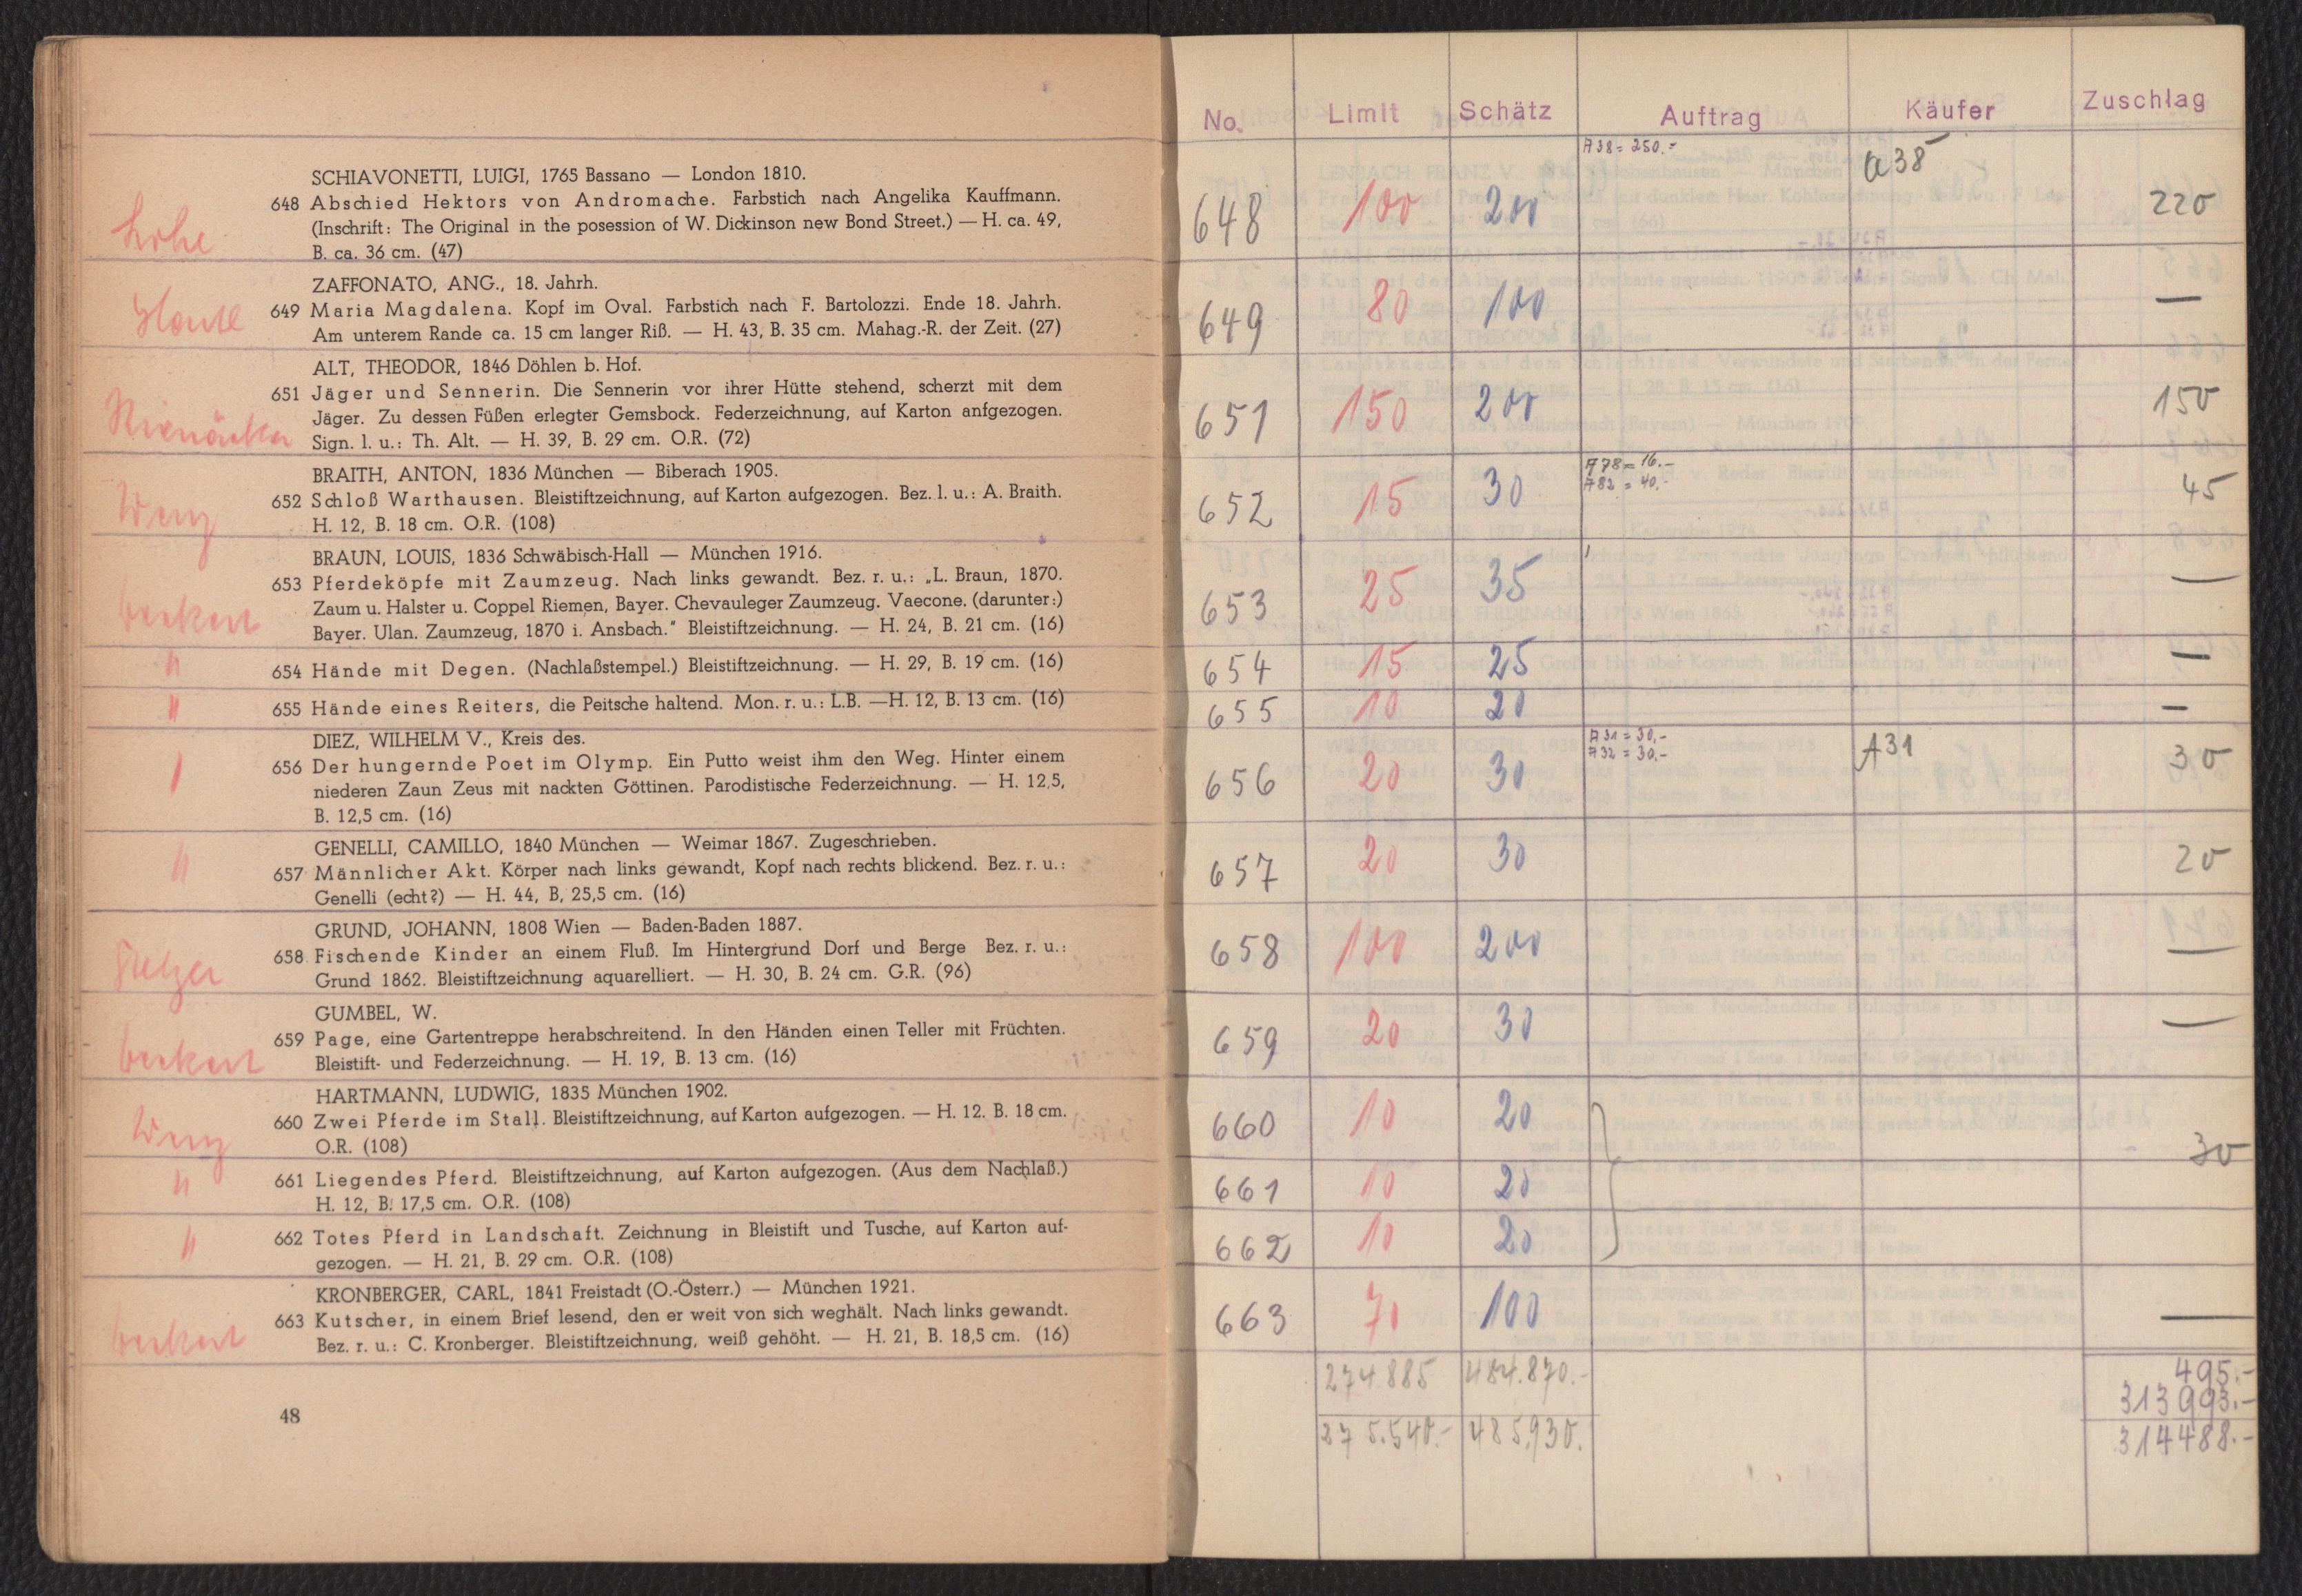 SCHIAVONETTI, LUIGI, 1765 Bassano — London 1810.
648 Abschied Hektors von Andromache. Farbstich nach Angelika Kauffmann.
(Inschrift: The Original in the posession of W. Dickinson new Bond Street.) — H. ca. 49,
B. ca. 36 cm. (47)
ZAFFONATO, ANG., 18. Jahrh.
649 Maria Magdalena. Kopf im Oval. Farbstich nach F. Bartolozzi. Ende 18. Jahrh.
Am unterem Rande ca. 15 cm langer Riß. — H. 43, B. 35 cm. Mahag.-R. der Zeit. (27)
ALT, THEODOR, 1846 Döhlen b. Hof.
651 Jäger und Sennerin. Die Sennerin vor ihrer Hütte stehend, scherzt mit dem
Jäger. Zu dessen Füßen erlegter Gemsbock. Federzeichnung, auf Karton anfgezogen.
Sign. l. u.: Th. Alt. — H. 39, B. 29 cm. O.R. (72)
BRAITH, ANTON, 1836 München — Biberach 1905.
Weny 652 Schloß Warthausen. Bleistiftzeichnung, auf Karton aufgezogen. Bez. l. u.: A. Braith.
H. 12, B. 18 cm. O.R. (108)
BRAUN, LOUIS, 1836 Schwäbisch-Hall — München 1916.
653 Pferdeköpfe mit Zaumzeug. Nach links gewandt. Bez. r. u.: „L. Braun, 1870.
Zaum u. Halster u. Coppel Riemen, Bayer. Chevauleger Zaumzeug. Vaecone. (darunter:)
Bayer. Ulan. Zaumzeug, 1870 i. Ansbach." Bleistiftzeichnung. — H. 24, B. 21 cm. (16)
" 654 Hände mit Degen. (Nachlaßstempel.) Bleistiftzeichnung. — H. 29, B. 19 cm. (16)
" 655 Hände eines Reiters, die Peitsche haltend. Mon. r. u.: L.B. —H. 12, B. 13 cm. (16)
DIEZ, WILHELM V., Kreis des.
656 Der hungernde Poet im Olymp. Ein Putto weist ihm den Weg. Hinter einem
niederen Zaun Zeus mit nackten Göttinen. Parodistische Federzeichnung. — H. 12,5,
B. 12,5 cm. (16)
GENELLI, CAMILLO, 1840 München — Weimar 1867. Zugeschrieben.
" 657 Männlicher Akt. Körper nach links gewandt, Kopf nach rechts blickend. Bez. r. u.:
Genelli (echt?) — H. 44, B, 25,5 cm. (16)
GRUND, JOHANN, 1808 Wien — Baden-Baden 1887.
658 Fischende Kinder an einem Fluß. Im Hintergrund Dorf und Berge Bez. r. u.:
Grund 1862. Bleistiftzeichnung aquarelliert. — H. 30, B. 24 cm. G.R. (96)
GUMBEL, W.
659 Page, eine Gartentreppe herabschreitend. In den Händen einen Teller mit Früchten.
Bleistift- und Federzeichnung. — H. 19, B. 13 cm. (16)
HARTMANN, LUDWIG, 1835 München 1902.
Weny 660 Zwei Pferde im Stall. Bleistiftzeichnung, auf Karton aufgezogen. — H. 12. B. 18 cm.
O.R. (108)
" 661 Liegendes Pferd. Bleistiftzeichnung, auf Karton aufgezogen. (Aus dem Nachlaß.)
H. 12, B. 17,5 cm. O.R. (108)
" 662 Totes Pferd in Landschaft. Zeichnung in Bleistift und Tusche, auf Karton auf-
gezogen. — H. 21, B. 29 cm. O.R. (108)
KRONBERGER, CARL, 1841 Freistadt (O.-Österr.) — München 1921.
663 Kutscher, in einem Brief lesend, den er weit von sich weghält. Nach links gewandt.
Bez. r. u.: C. Kronberger. Bleistiftzeichnung, weiß gehöht. — H. 21, B. 18,5 cm. (16)
48
No. Limit Schätz Auftrag Käufer Zuschlag
648 100 200 A38= 250.- A38 220
649 80 100 —
651 150 200 150
652 15 30 A78= 16.- 45
A82 = 40.-
653 25 35 —
654 15 25 —
655 10 20 —
656 20 30 A31 = 30.- A31 30
A32 = 30.-
657 20 30 20
658 100 200 —
659 20 30 —
660 10 20 30
661 10 20
662 10 20
663 70 100 —
274.885 484.870.- 495.-
313993.-
275.540.- 485.930. 314488.-